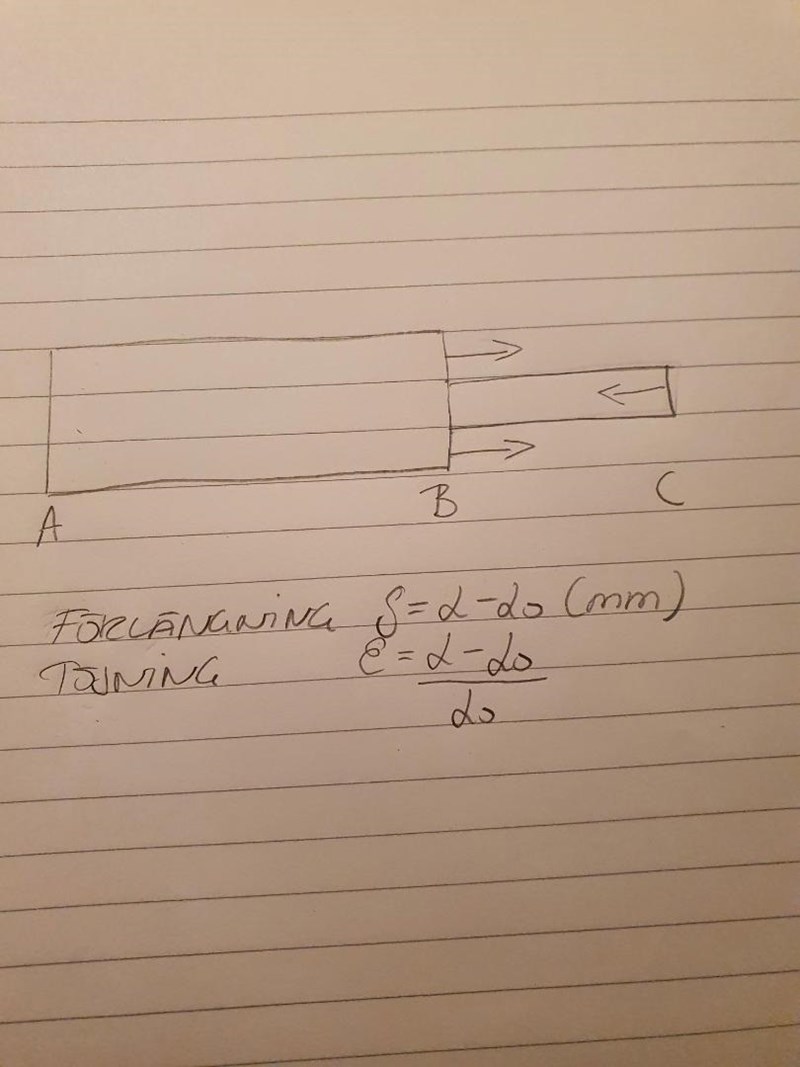 A
B
C
FÖRLÄNGNING δ = L - L₀ (mm)
TÖJNING ε = L - L₀
L₀